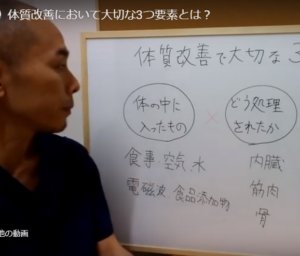 体質改善において大切な3つ要素とは？
体質改善で大切な3
体の中に
入ったもの
×
どう処理
されたか
食事 空気 水
電磁波 食品添加物
内臓
筋肉
骨
他の動画